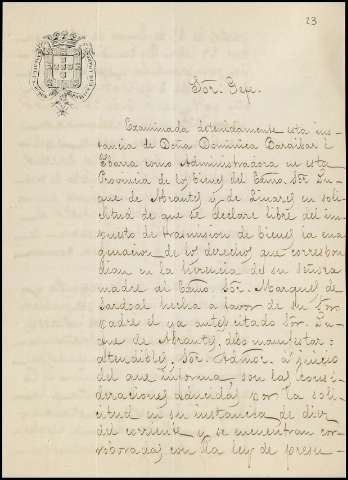 23
Sor. Gefe.
Examinada detenidamente esta ins-
tancia de Doña Dominica Baraibar é
Ibarra como Administradora en esta
Provincia de los bienes del Exmo. Sor. Du-
que de Abrantes y de Linares en soli-
citud de que se declare libre del im-
puesto de trasmision de bienes la ena-
genacion de los derechos que correspon-
dian en la herencia de su Señora
madre al Exmo. Sor. Marques de
Sardoal hecha a favor de su Sor.
padre el ya antes citado Sor. Du-
que de Abrantes, debo manifestar:
Atendibles, Sor. á juicio
del que informa, son las consi-
deraciones aducidas por la soli-
citud en su instancia de diez
del corriente y se encuentran cor-
roboradas con la ley de presu-